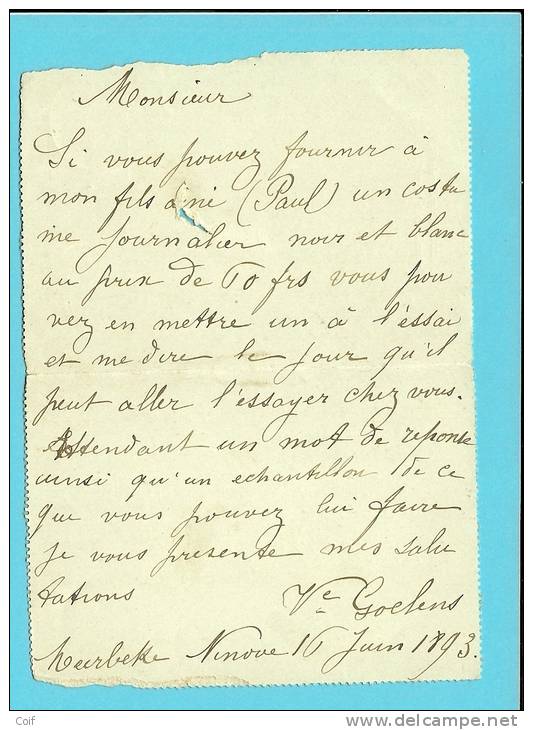 Monsieur
Si vous pouvez fournir à
mon fils ainé (Paul) un costu
me journalier noir et blanc
au prix de 60 frs vous pou
vez en mettre un à l'éssai
et me dire le jour qu'il
peut aller l'éssayer chez vous.
Attendant un mot de reponse
ainsi qu'un echantillon de ce
que vous pouvez lui faire
je vous presente mes salu
tations
Ve Goelens
Meerbeke Ninove 16 Juin 1893.
Coif
www.delcampe.net